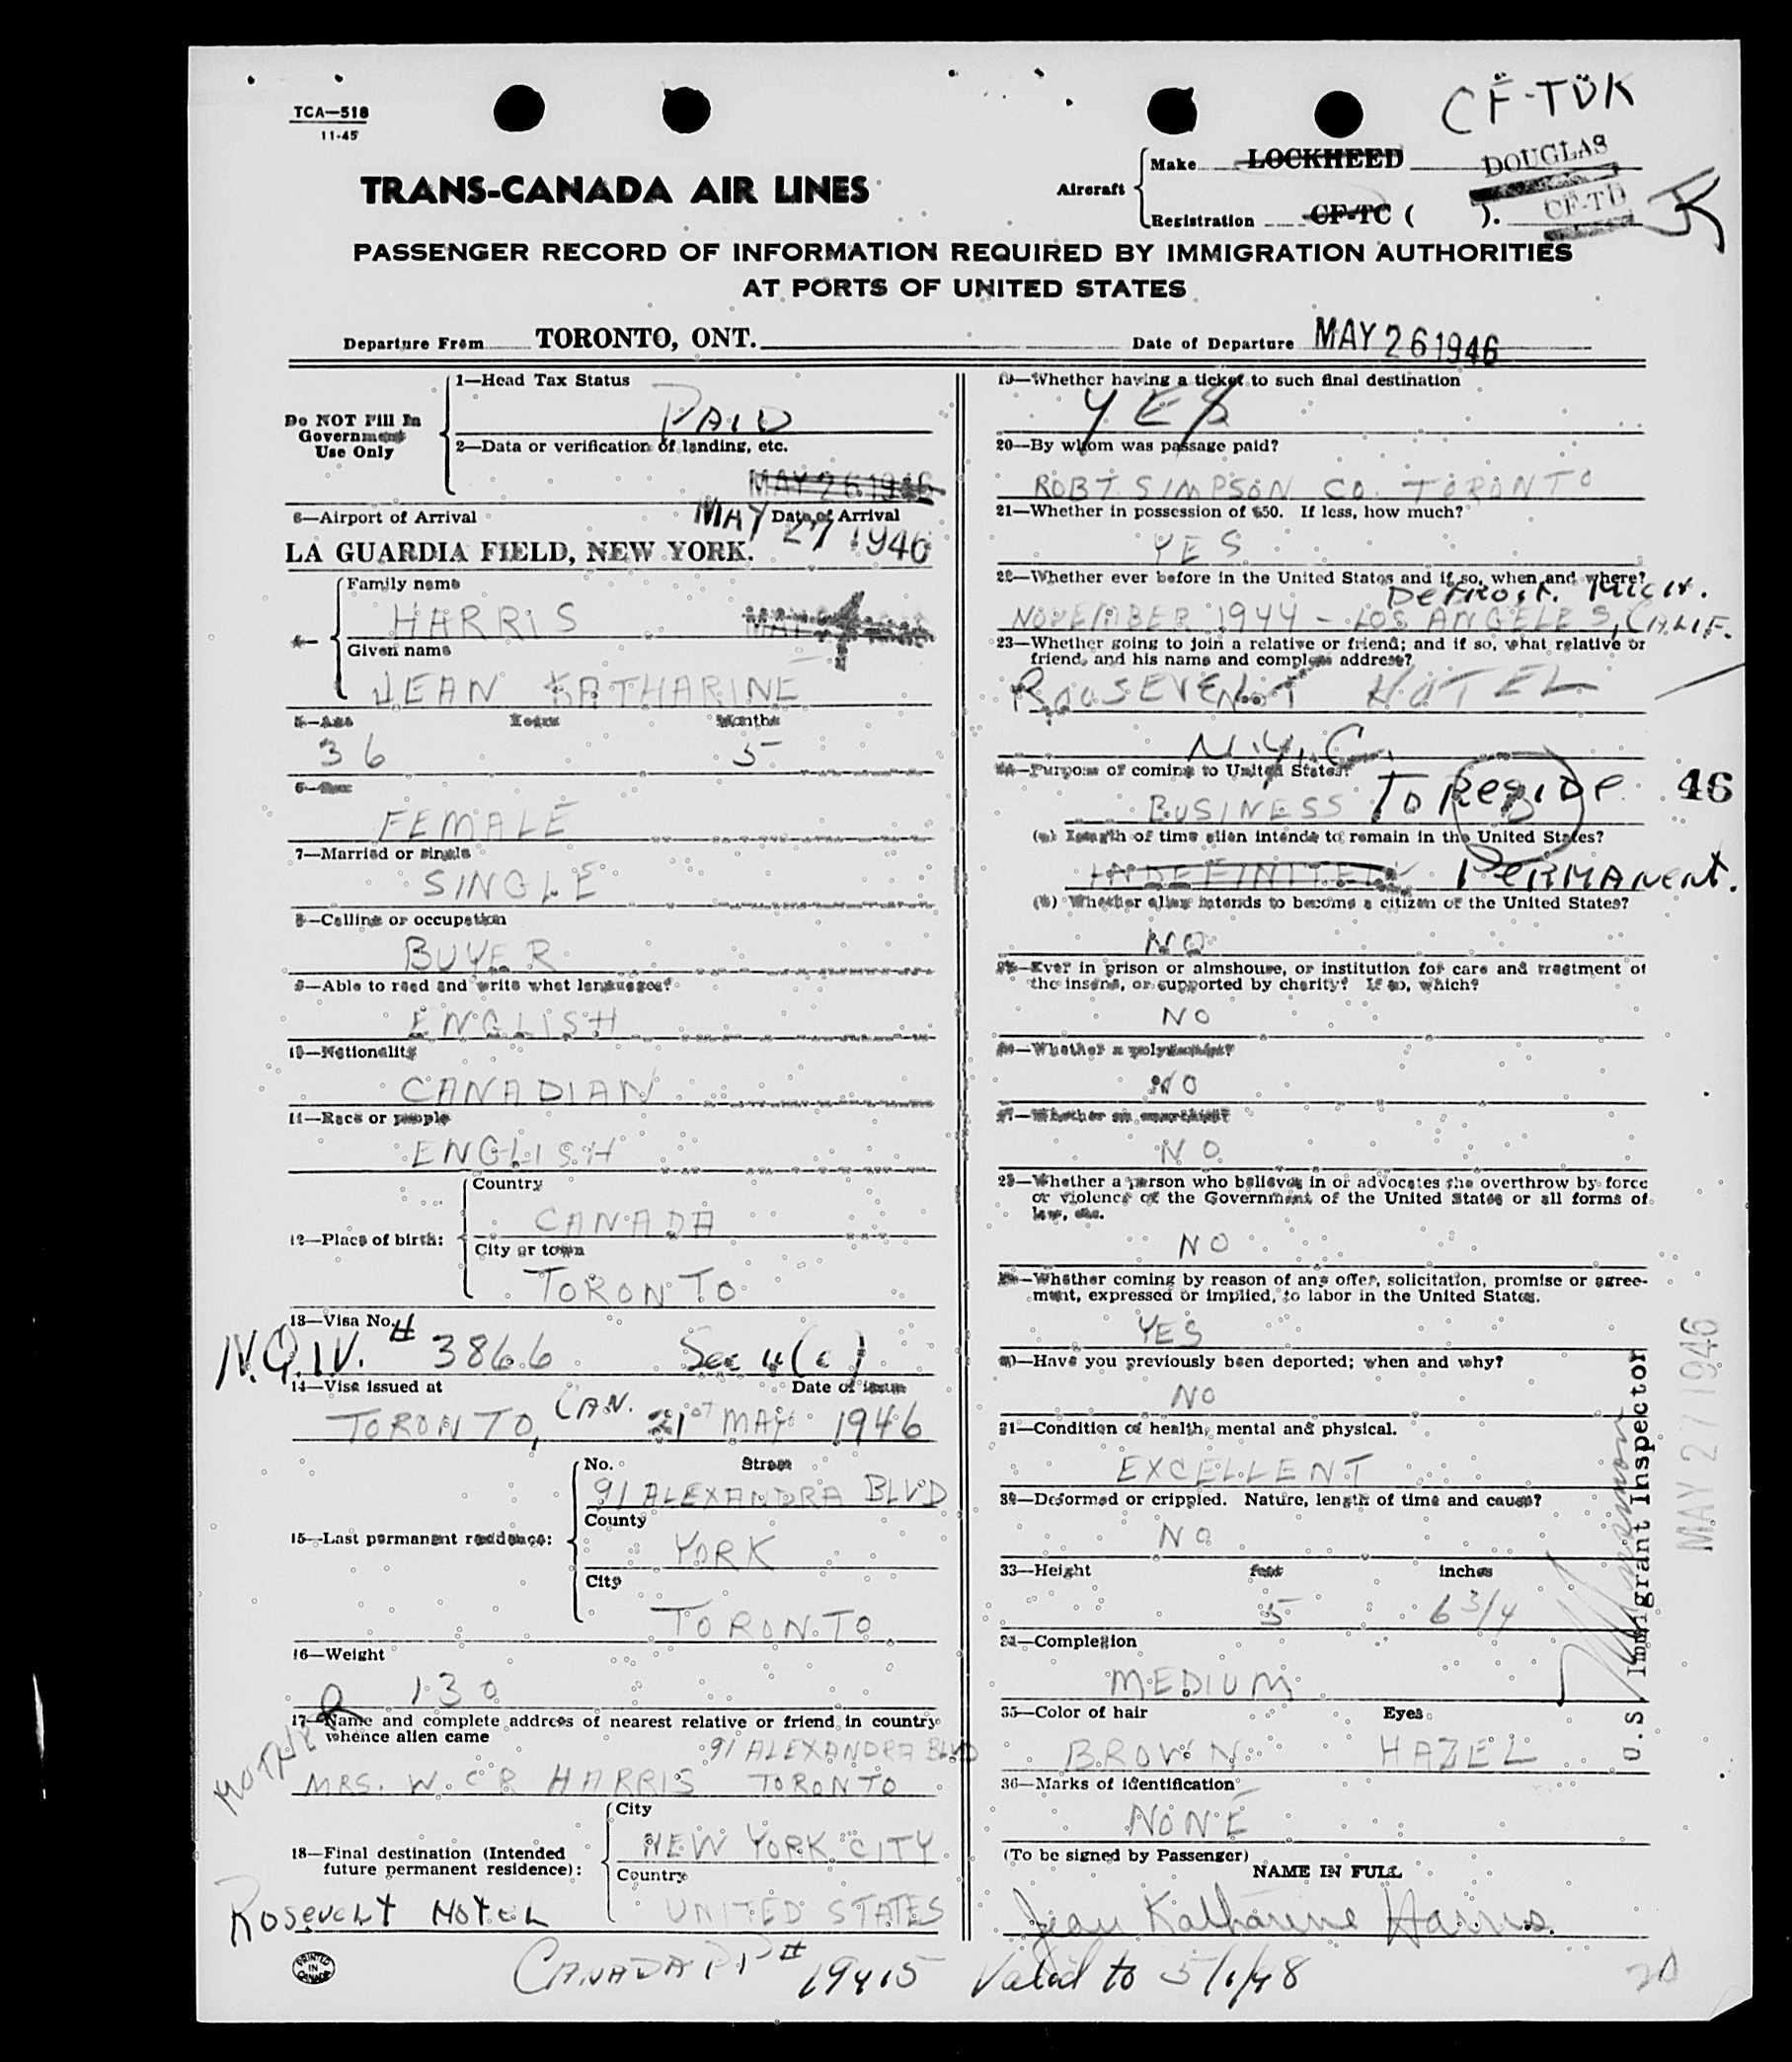 CF-TDK
TCA—518
11-45
TRANS-CANADA AIR LINES
Aircraft
Make LOCKHEED DOUGLAS
Registration CF-TC ( ). CF-TD K
PASSENGER RECORD OF INFORMATION REQUIRED BY IMMIGRATION AUTHORITIES
AT PORTS OF UNITED STATES
Departure From TORONTO, ONT.
Date of Departure MAY 26 1946
Do NOT Fill In
Government
Use Only
1—Head Tax Status
PAID
2—Data or verification of landing, etc.
MAY 26 1946
3—Airport of Arrival
Date of Arrival
MAY 27 1946
LA GUARDIA FIELD, NEW YORK.
4—
Family name
HARRIS
Given name
JEAN KATHARINE
5—Age Years Months
36 5
6—Sex
FEMALE
7—Married or single
SINGLE
8—Calling or occupation
BUYER
9—Able to read and write what languages?
ENGLISH
10—Nationality
CANADIAN
11—Race or people
ENGLISH
12—Place of birth:
Country
CANADA
City or town
TORONTO
13—Visa No.
N.Q.I.V. # 3866 Sec 4(c)
14—Visa issued at Date of issue
TORONTO, CAN. 21ST MAY 1946
15—Last permanent residence:
No. Street
91 ALEXANDRA BLVD
County
YORK
City
TORONTO
16—Weight
130
17—Name and complete address of nearest relative or friend in country
whence alien came
MOTHER
91 ALEXANDRA BLVD
MRS. W. C R HARRIS TORONTO
18—Final destination (Intended
future permanent residence):
City
NEW YORK CITY
Country
UNITED STATES
Rosevelt Hotel
PRINTED
IN
CANADA
CANADA PP# 19415 Valid to 5/1/48
19—Whether having a ticket to such final destination
YES
20—By whom was passage paid?
ROBT SIMPSON CO. TORONTO
21—Whether in possession of $50. If less, how much?
YES
22—Whether ever before in the United States and if so, when and where?
Detroit. Mich.
NOVEMBER 1944 - LOS ANGELES, CALIF.
23—Whether going to join a relative or friend; and if so, what relative or
friend, and his name and complete address?
ROOSEVELT HOTEL
N.Y.C.
24—Purpose of coming to United States?
BUSINESS To Reside
46
(a) Length of time alien intends to remain in the United States?
INDEFINITELY PERMANENT.
(b) Whether alien intends to become a citizen of the United States?
NO
25—Ever in prison or almshouse, or institution for care and treatment of
the insane, or supported by charity? If so, which?
NO
26—Whether a polygamist?
NO
27—Whether an anarchist?
NO
28—Whether a person who believes in or advocates the overthrow by force
or violence of the Government of the United States or all forms of
law, etc.
NO
29—Whether coming by reason of any offer, solicitation, promise or agree-
ment, expressed or implied, to labor in the United States.
YES
30—Have you previously been deported; when and why?
NO
31—Condition of health, mental and physical.
EXCELLENT
32—Deformed or crippled. Nature, length of time and cause?
NO
33—Height feet inches
5 6 3/4
34—Complexion
MEDIUM
35—Color of hair Eyes
BROWN HAZEL
36—Marks of identification
NONE
(To be signed by Passenger)
NAME IN FULL
Jean Katharine Harris.
20
U.S. Immigrant Inspector
MAY 27 1946